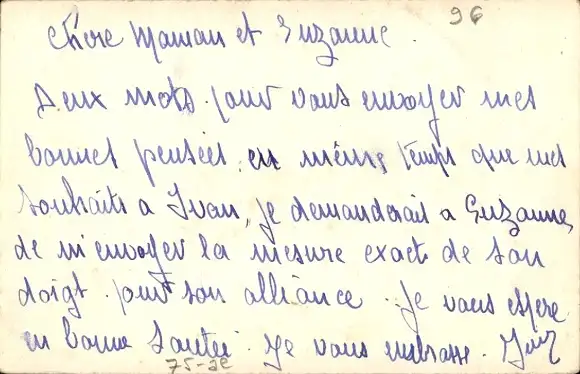 96
chère Maman et Suzanne.
Deux mots pour vous envoyer mes
bonnes pensées en même temps que mes
souhaits a Ivan, je demanderais a Suzanne,
de m'envoyer la mesure exact de son
doigt pour son alliance. Je vous espère
en bonne santée. Je vous embrasse.
75-2e